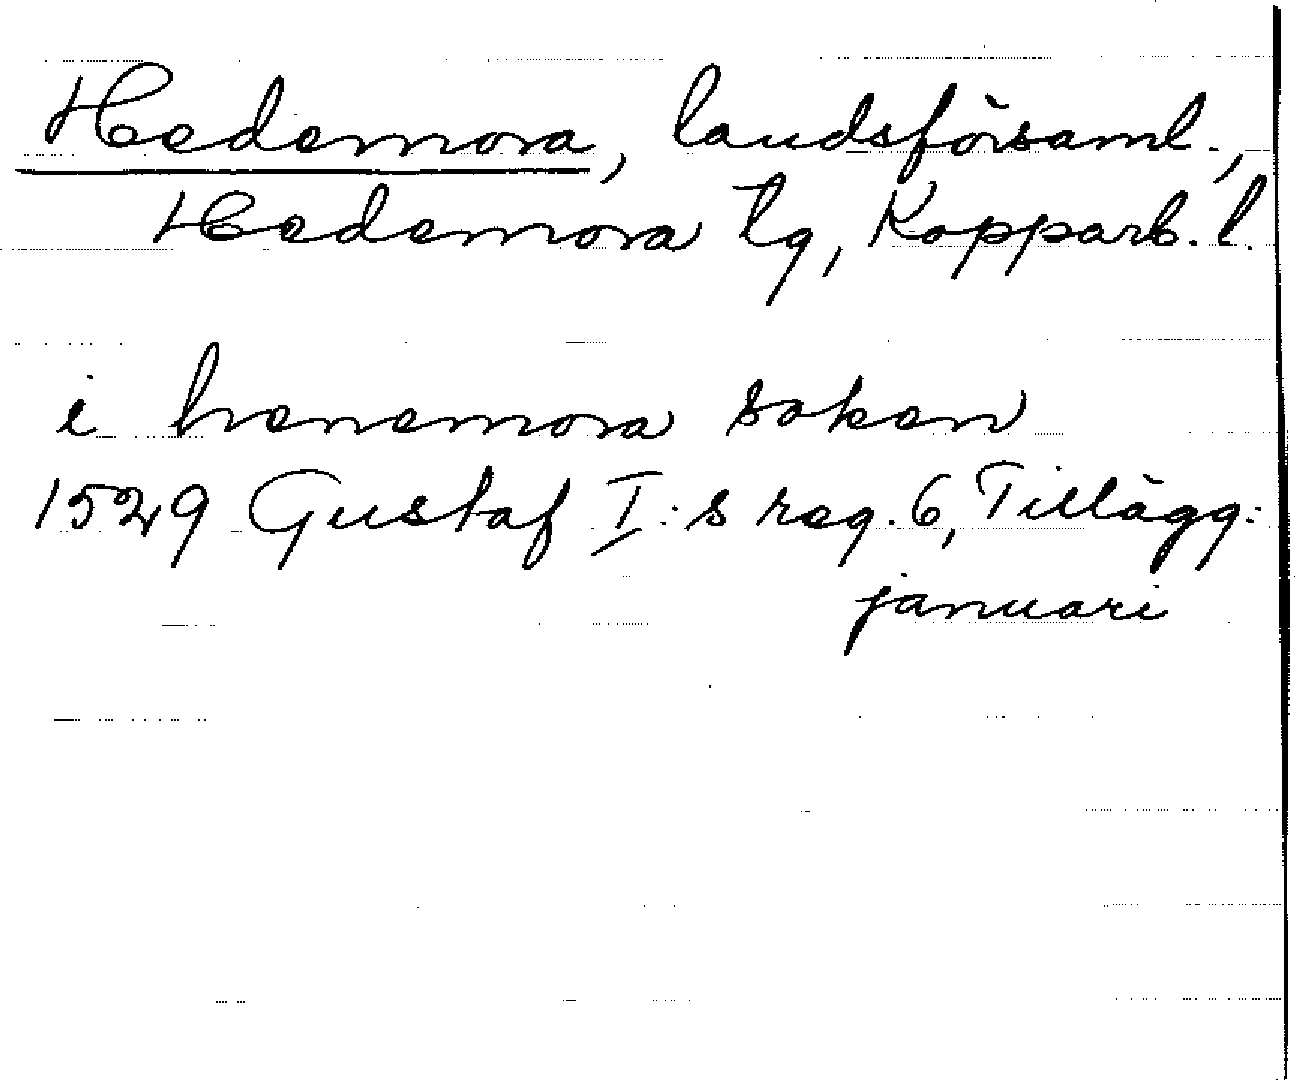 Hedemora, landsförsaml.,
Hedemora tg, Kopparb. l.
i henemora soken
1529 Gustaf I:s reg. 6, Tillägg:
januari